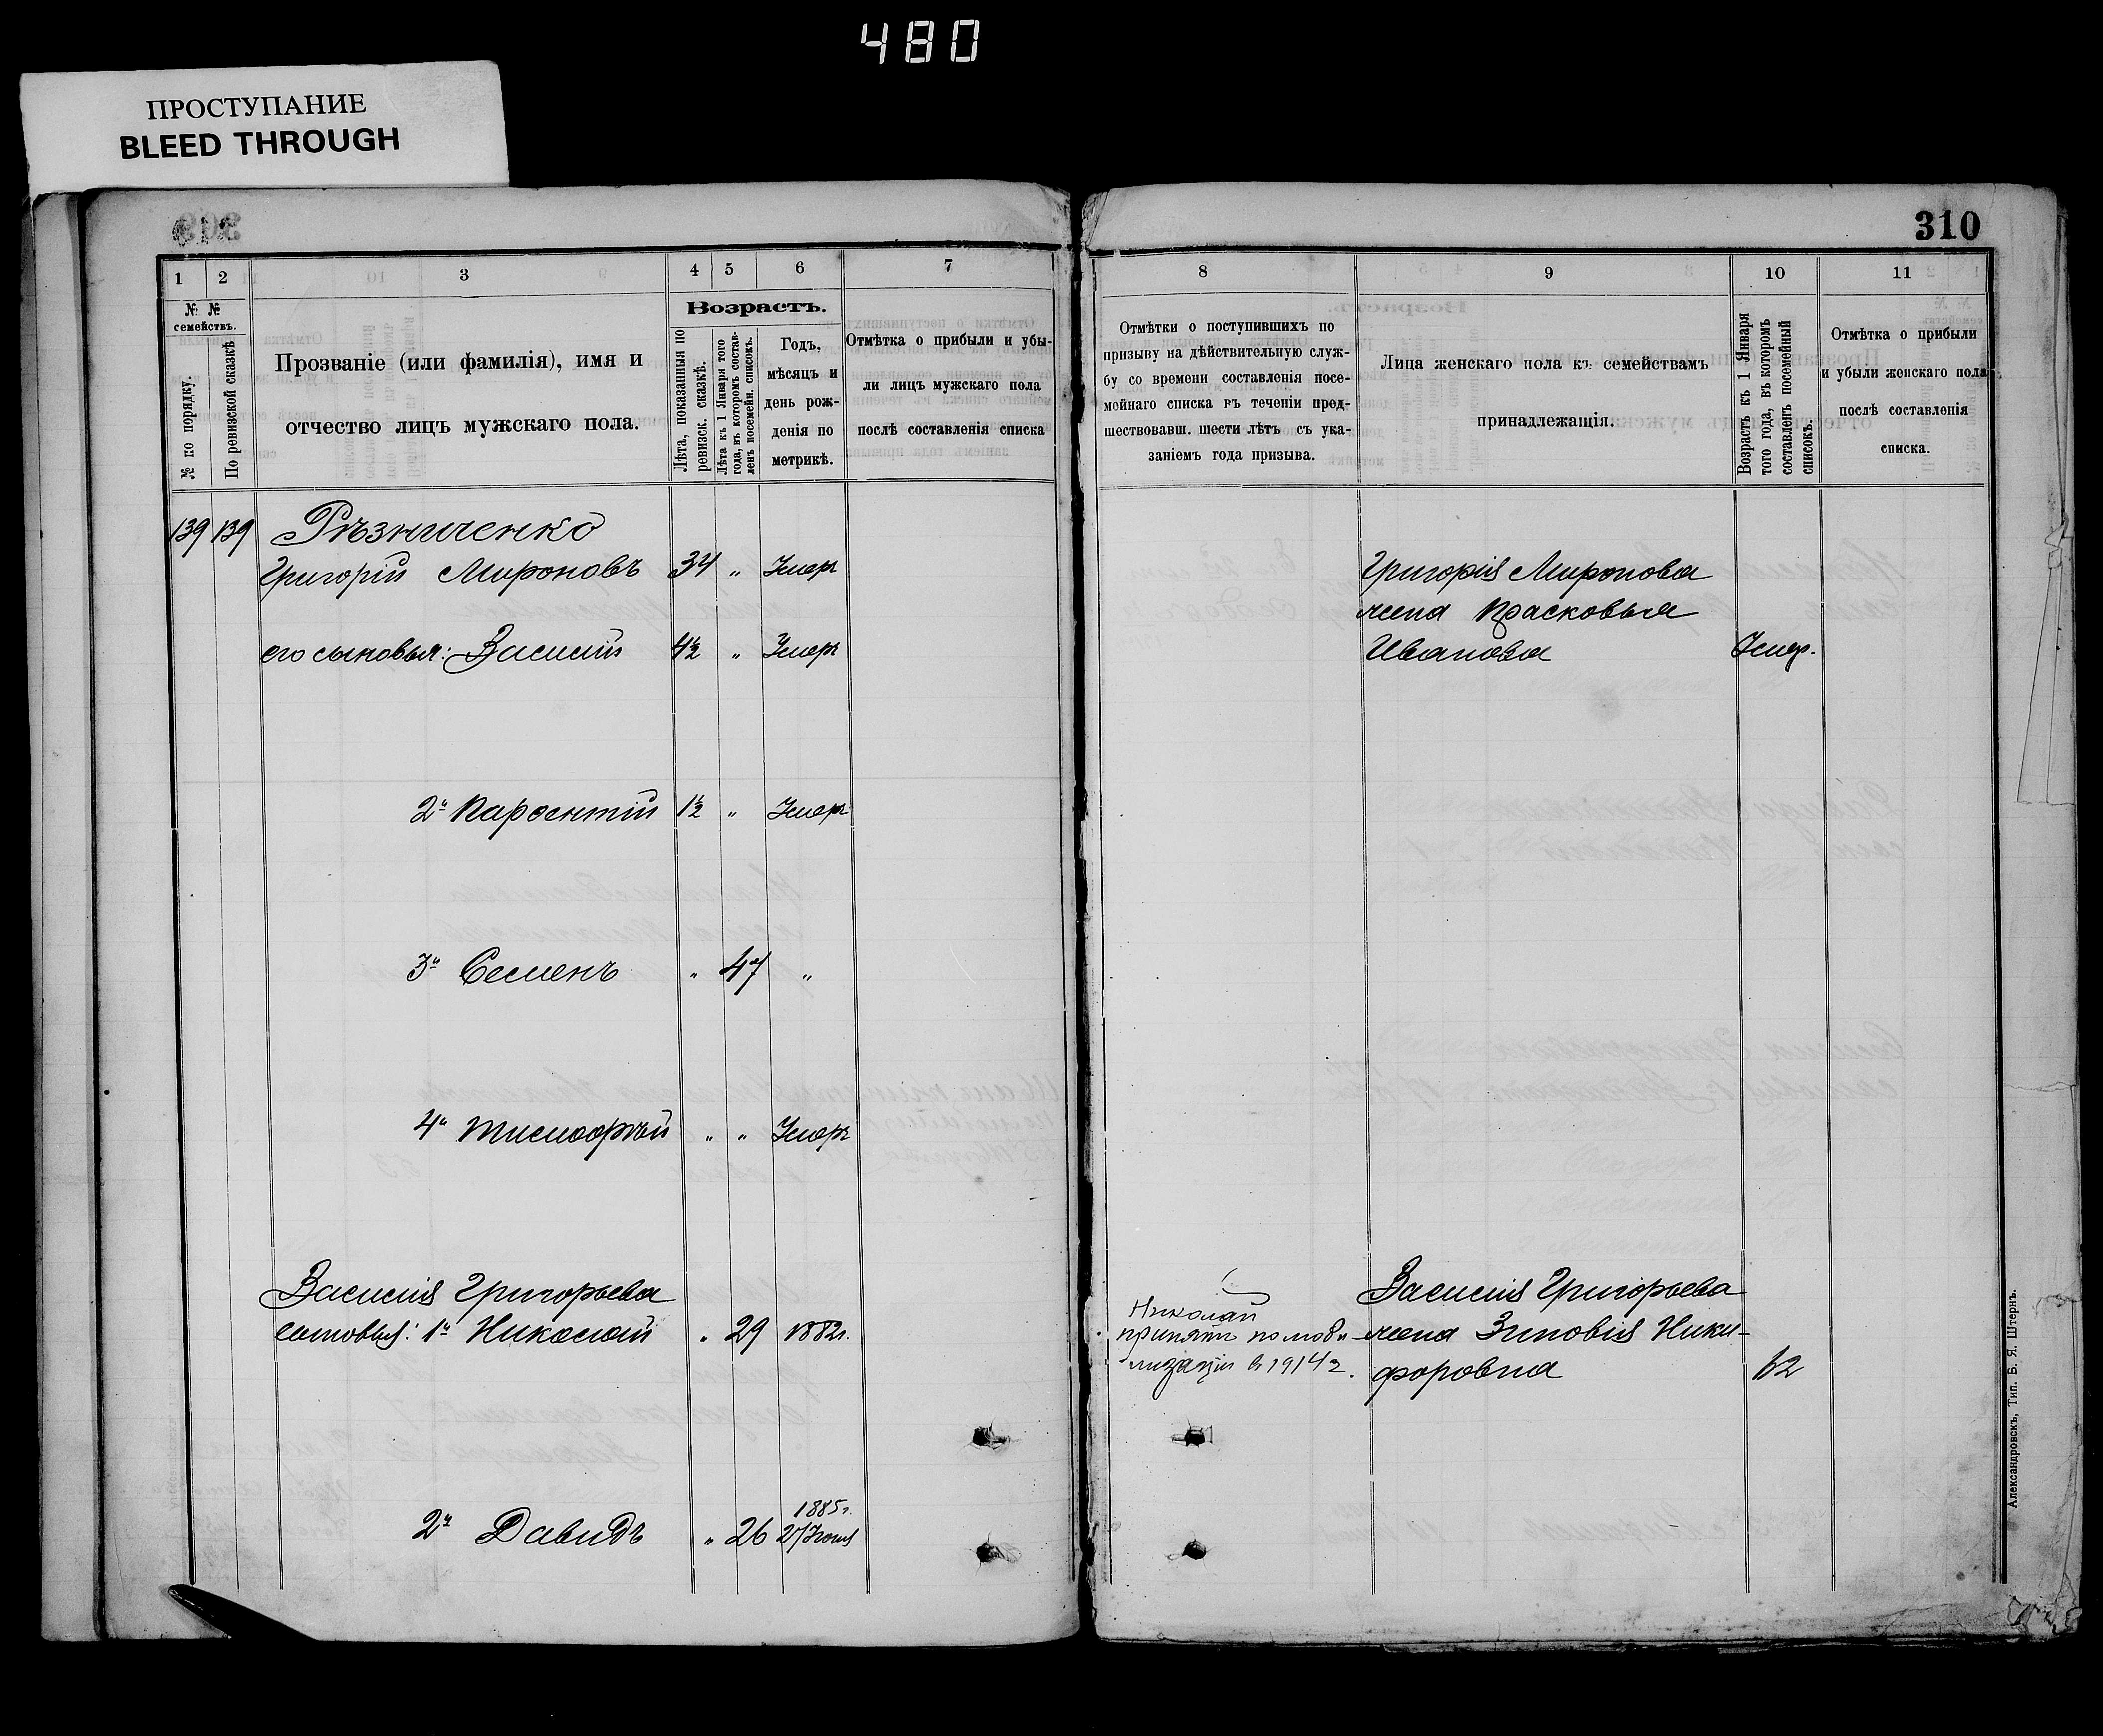 480
ПРОСТУПАНИЕ
BLEED THROUGH
310
1 2 3 4 5 6 7
№ № семействъ.
№ по порядку.
По ревизской сказкѣ
Прозваніе (или фамилія), имя и
отчество лицъ мужскаго пола.
Возрастъ.
Лѣта, показанныя по
ревизск. сказкѣ.
Лѣта къ 1 Января того
года, въ которомъ состав-
ленъ посемейн. списокъ.
Годъ,
мѣсяцъ и
день рож-
денія по
метрикѣ.
Отмѣтка о прибыли и убы-
ли лицъ мужскаго пола
послѣ составленія списка
139 139 Рѣзниченко
Григорій Мироновъ 34 " Умеръ
его сыновья: Василій 4½ " Умеръ
2й Парфентій 1½ " Умеръ
3й Семенъ " 47 "
4й Тимофѣй " " Умеръ
Василія Григорьева
сыновья: 1й Николай " 29 1882г.
1885г.
2й Давидъ " 26 27/Іюня
8 9 10 11
Отмѣтки о поступившихъ по
призыву на дѣйствительную служ-
бу со времени составленія посе-
мейнаго списка въ теченіи пред-
шествовавш. шести лѣтъ съ ука-
заніемъ года призыва.
Лица женскаго пола къ семействамъ
принадлежащія.
Возрастъ къ 1 Января
того года, въ которомъ
составленъ посемейный
списокъ.
Отмѣтка о прибыли
и убыли женскаго пола
послѣ составленія
списка.
Григорія Миронова
жена Прасковья
Иванова Умер.
Василія Григорьева
жена Зиновія Ники-
форовна 62
Николай
принятъ по моби-
лизаціи в 1914 г.
Александровскъ, Тип. Б. Я. Штернъ.